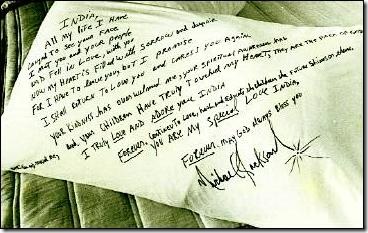 INDIA,
All my life I Have
longed to see your FACE
I met you and your people
and Fell in Love with you
Now my HEART is Filled with SORROW and despair
For I Have to leave, but I PROMISE
I shall RETURN to Love you and CARESS you Again.
your KINDNESS HAS overwhelmed me, your spiritual AWARENESS HAS
and your CHILDREN HAVE TRULY Touched my HEART, THEY ARE THE FACE OF GOD
I truly Love AND ADORE you INDIA
FOREVER, Continue to Love, heal and Educate the children, the Future Shines on them.
YOU ARE MY SPECIAL LOVE INDIA,
FOREVER, MAY GOD Always Bless you
Michael Jackson